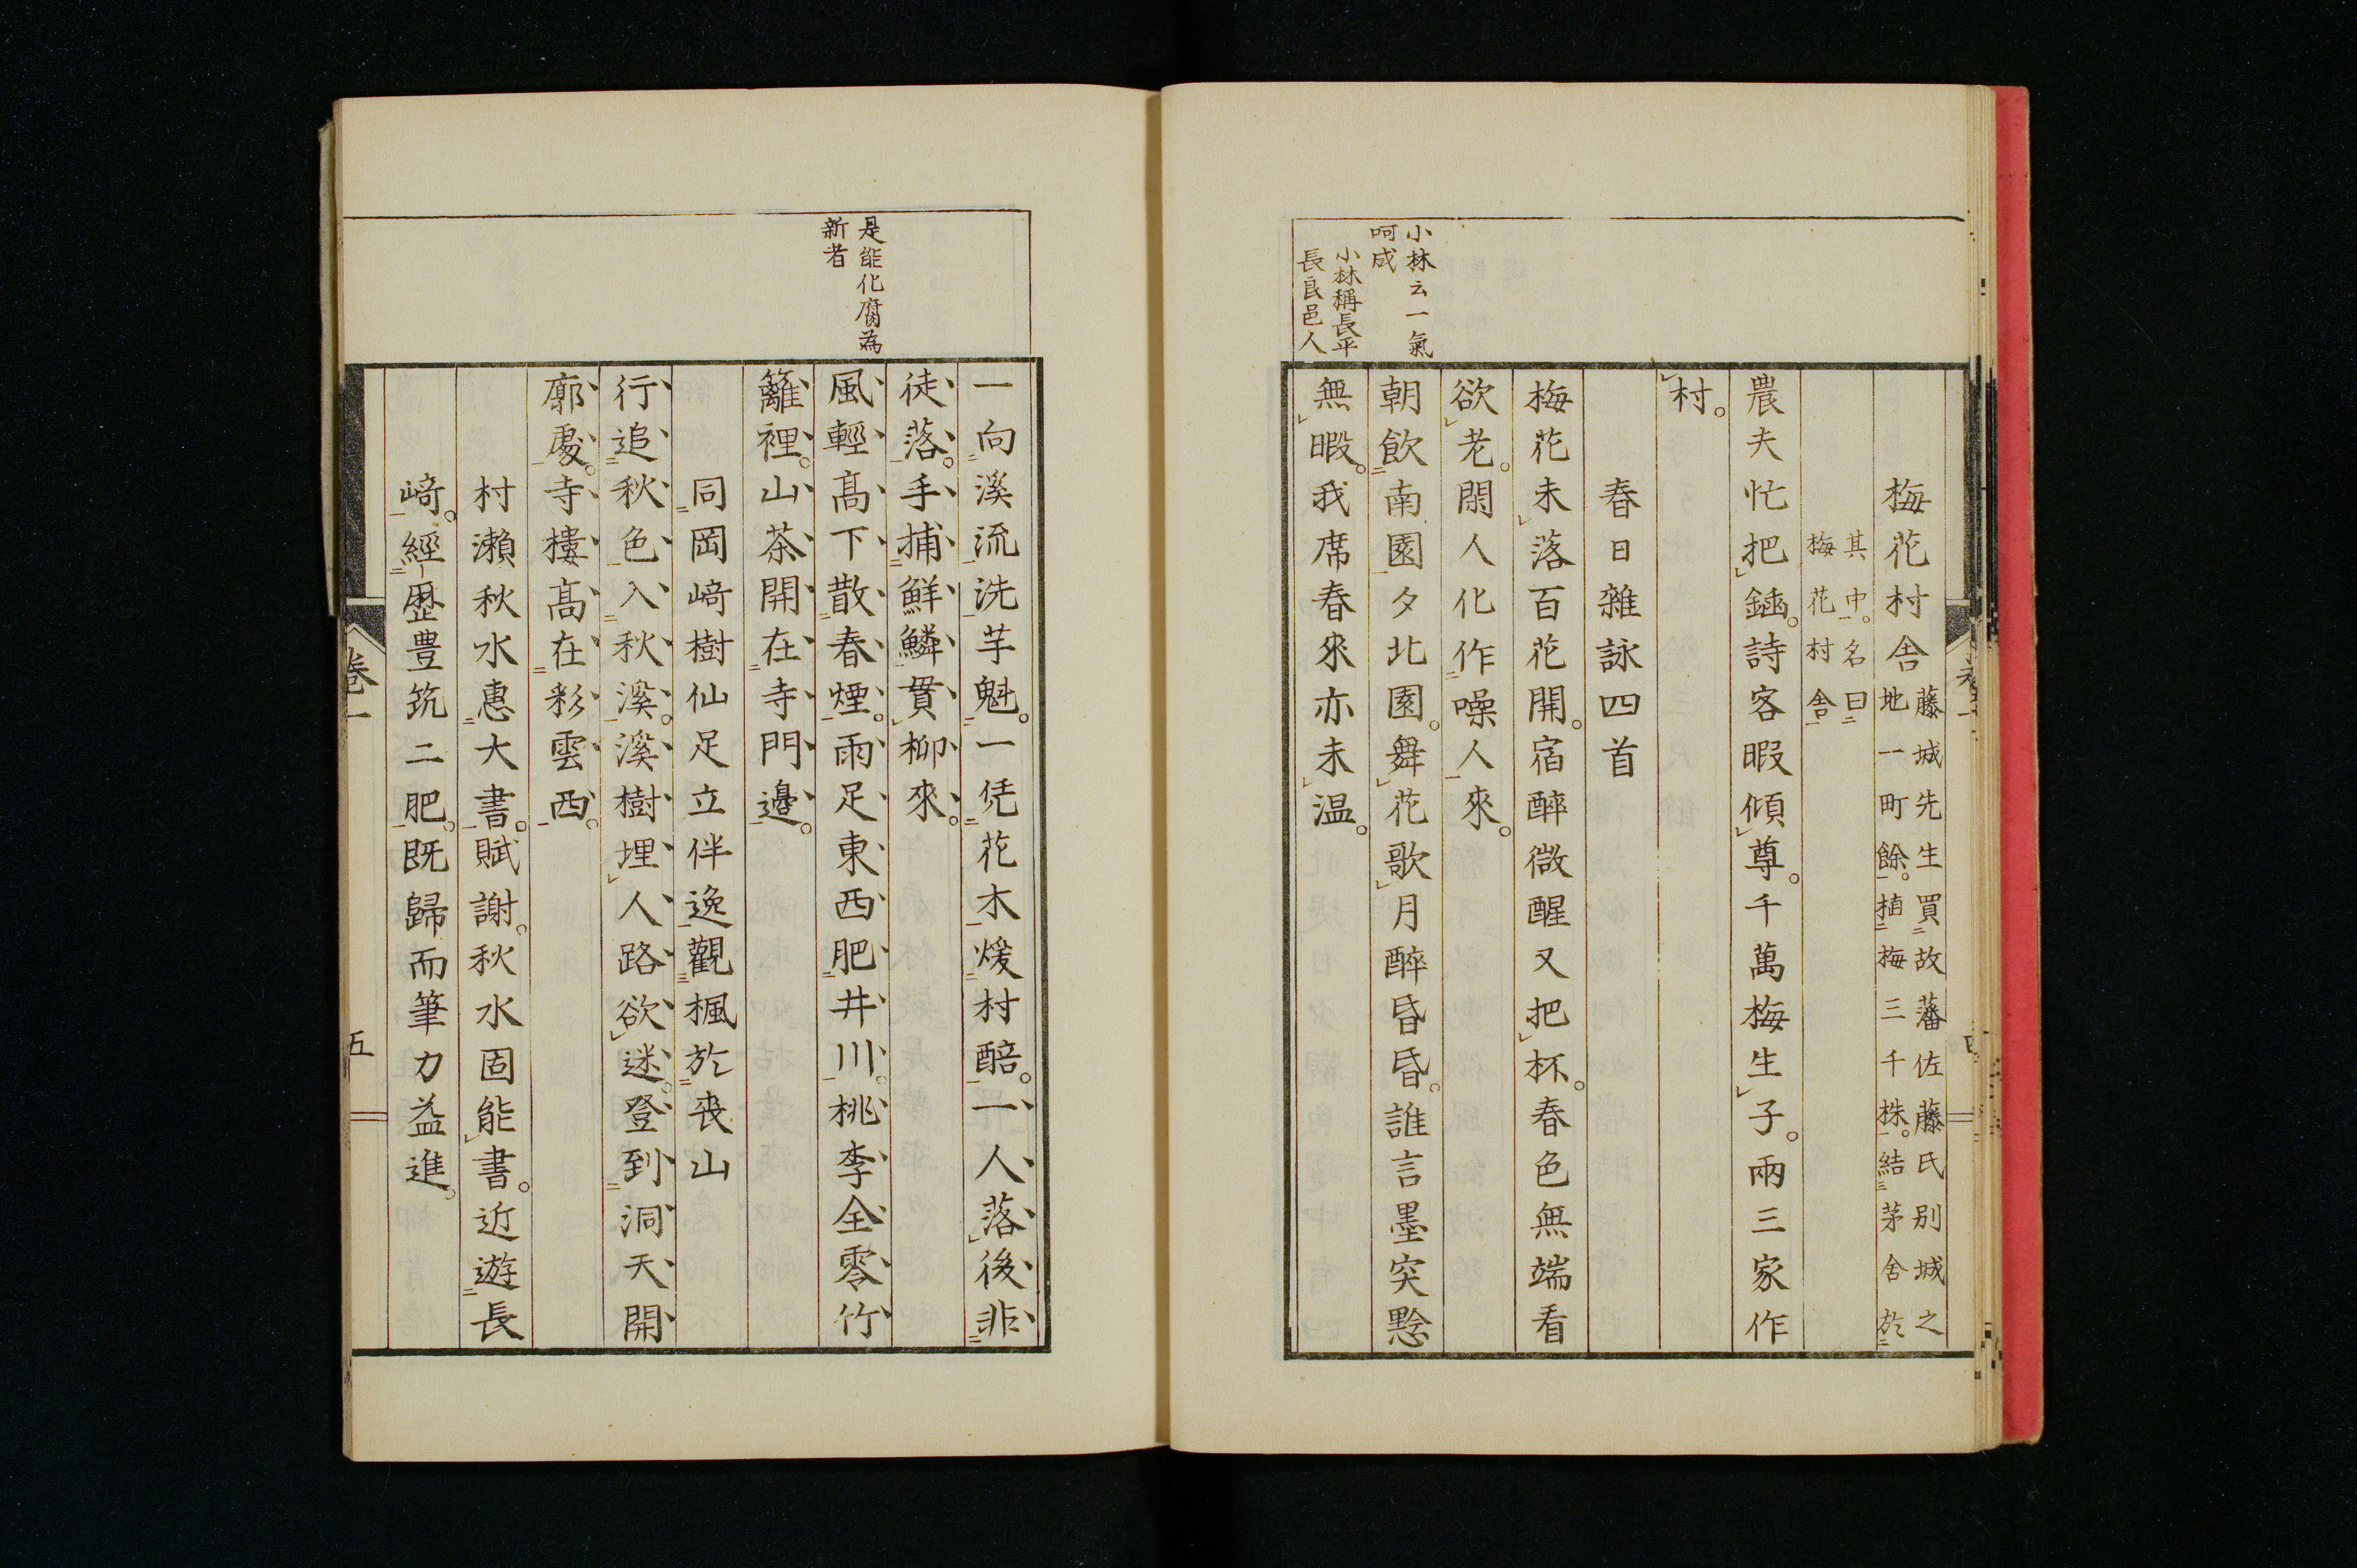 梅花村舍 藤城先生買故藩佐藤氏別城之
地一町餘。植梅三千株。結茅舍於
其中。名曰
梅花村舍
農夫忙把鍤。詩客暇傾尊。千萬梅生子。兩三家作
村。
春日雜詠四首
梅花未落百花開。宿醉微醒又把杯。春色無端看
欲老。閑人化作噪人來。
朝飲南園夕北園。舞花歌月醉昏昏。誰言墨突黔
無暇。我席春來亦未温。
小林云一氣
呵成
小林稱長平
長良邑人
一向溪流洗芋魁。一凭花木煖村醅。一人落後非
徒落。手捕鮮鱗貫柳來。
風輕高下散春煙。雨足東西肥井川。桃李全零竹
籬裡。山茶開在寺門邊。
是能化腐為
新者
同岡﨑樹仙足立伴逸觀楓於喪山
行追秋色入秋溪。溪樹埋人路欲迷。登到洞天開
廓處。寺樓高在彩雲西。
村瀨秋水惠大書。賦謝。秋水固能書。近遊長
﨑。經歷豊筑二肥。既歸而筆力益進。
卷一
五